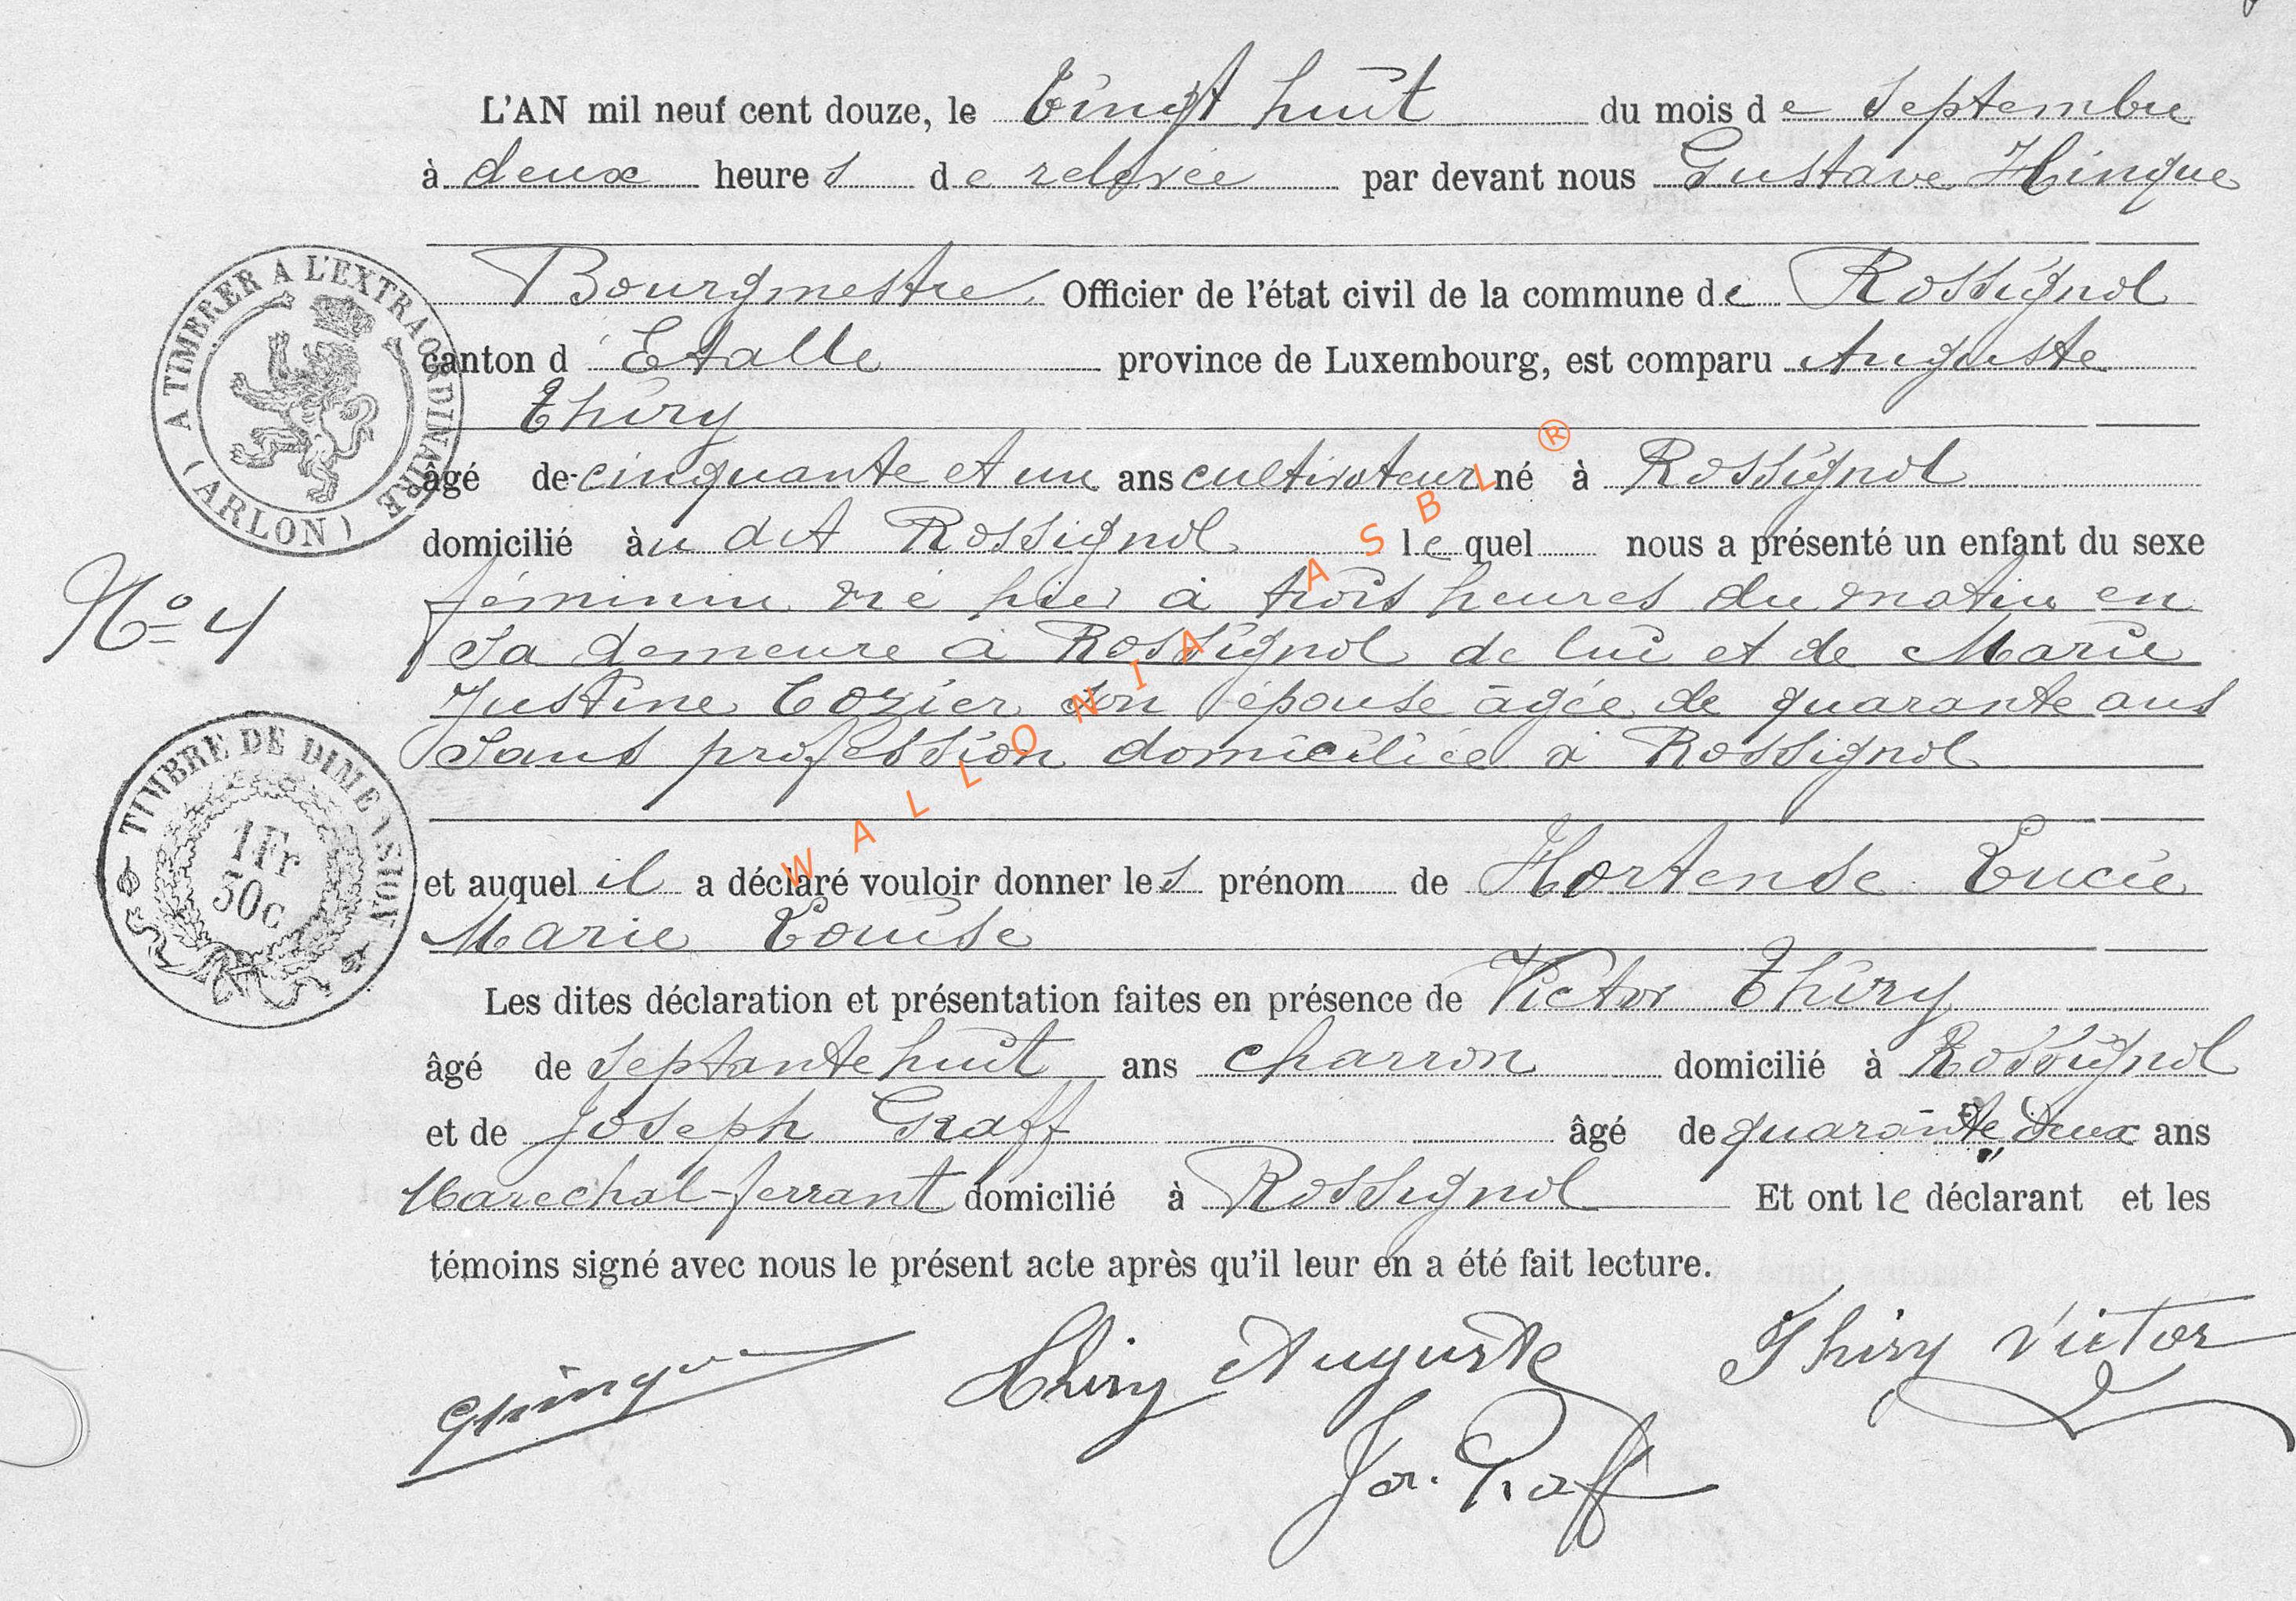 L'AN mil neuf cent douze, le Vingt huit du mois de Septembre
à deux heures de relevée par devant nous Gustave Hinque
Bourgmestre Officier de l'état civil de la commune de Rossignol
canton d'Etalle province de Luxembourg, est comparu Auguste
Thiry
âgé de cinquante et un ans cultivateur né à Rossignol
domicilié au dit Rossignol lequel nous a présenté un enfant du sexe
féminin né hier à trois heures du matin en
sa demeure à Rossignol de lui et de Marie
Justine Cozier son épouse âgée de quarante ans
sans profession domiciliée à Rossignol
et auquel il a déclaré vouloir donner les prénom de Hortense Lucie
Marie Louise
Les dites déclaration et présentation faites en présence de Victor Thiry
âgé de septante huit ans charron domicilié à Rossignol
et de Joseph Graff âgé de quarante deux ans
Marechal-ferrant domicilié à Rossignol Et ont le déclarant et les
témoins signé avec nous le présent acte après qu'il leur en a été fait lecture.
GHinque Thiry Auguste Thiry Victor
Jos. Graff
A TIMBRER A L'EXTRAORDINAIRE
(ARLON)
No 4
TIMBRE DE DIMENSION
1 Fr
50c
WALLONIA ASBL ®